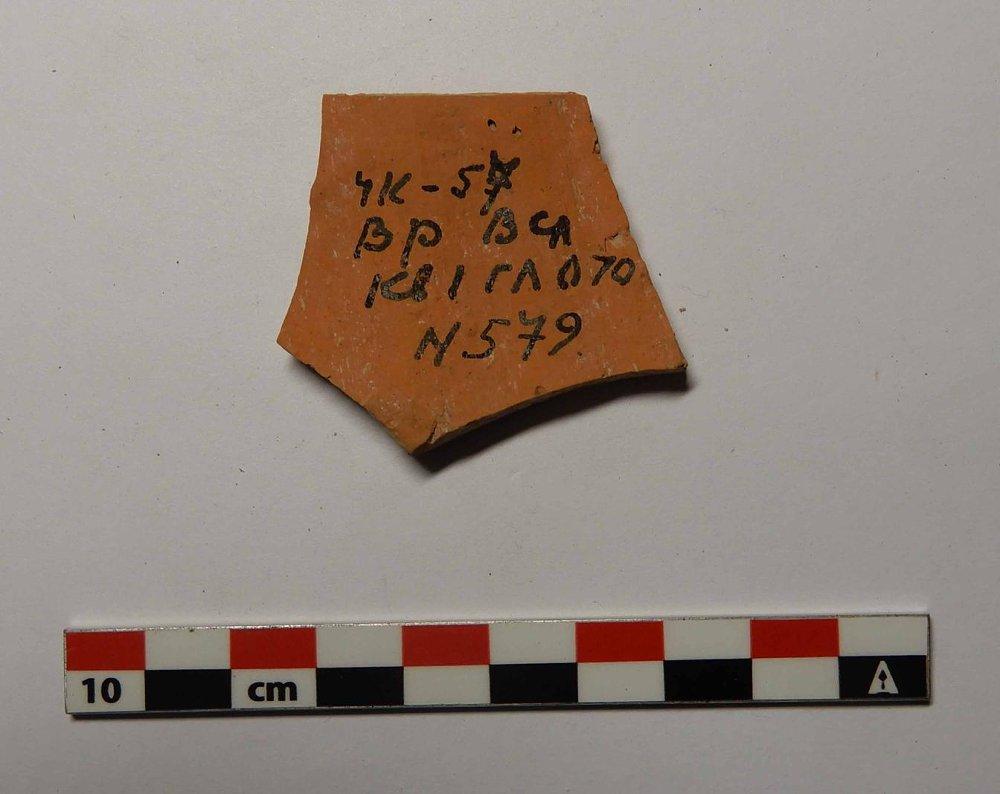 ЧК-57
Вр В СЛ
Кв 1 ГЛ 0 70
N 579
10 cm